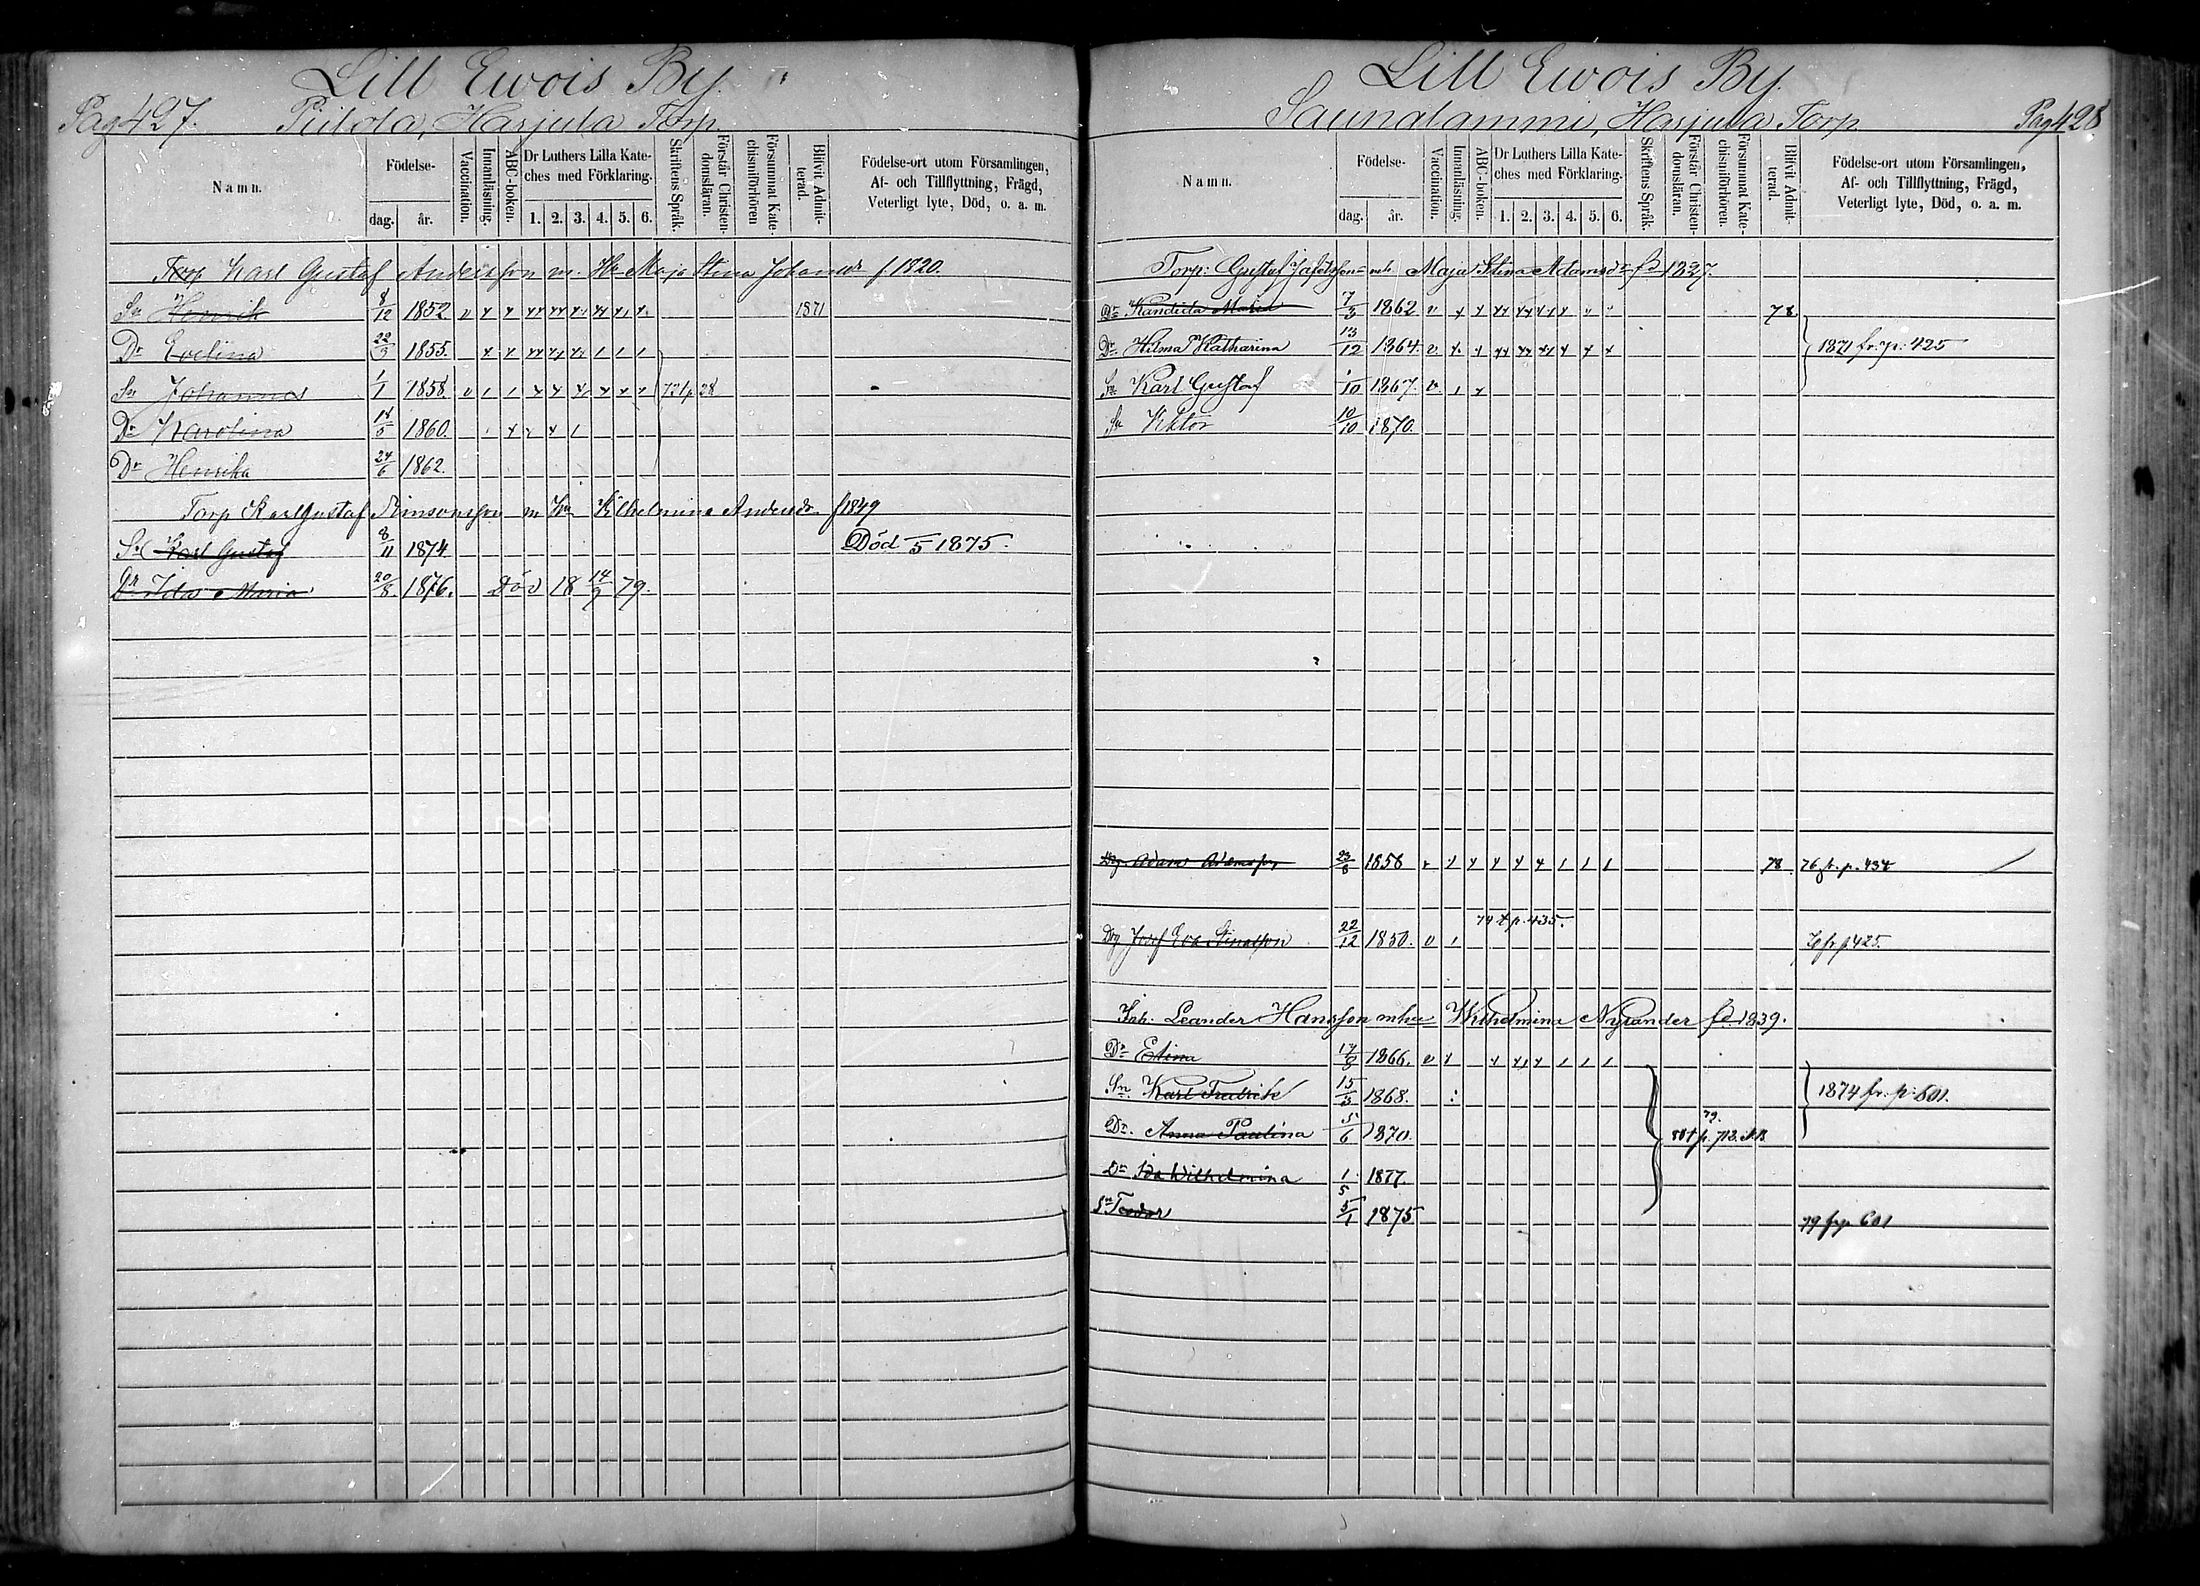 Lill Ewois By.
Pag 427. Piilola, Harjula Torp.
Namn.
Födelse-
dag. år.
Vaccination.
Innanläsning.
ABC-boken.
Dr Luthers Lilla Kate-
ches med Förklaring.
1. 2. 3. 4. 5. 6.
Skriftens Språk.
Förstår Christen-
domsläran.
Försummat Kate-
chismiförhören
Blifvit Admit-
terad.
Födelse-ort utom Församlingen,
Af- och Tillflyttning, Frägd,
Veterligt lyte, Död, o. a. m.
Torp Karl Gustaf Andersson m. Hu Maja Stina Johansdr f 1820.
Sn Henrik 8/12 1852 v x x xx xx xx xx x x 1871
Dr Evelina 22/3 1855.
Sn Johannes 1/1 1858. v
Dr Karolina 18/5 1860.
Dr Henrika 24/6 1862.
Torp Karl Gustaf Simonsson m Hu Vilhelmina Andersdr f 1849
Sn Karl Gustaf 8/11 1874. Död /5 1875.
Dr Ida Maria 20/8 1876. Död 18 14/9 79.
Lill Ewois By.
Saunalammi, Harjula Torp Pag 428
Namn.
Födelse-
dag. år.
Vaccination.
Innanläsning.
ABC-boken.
Dr Luthers Lilla Kate-
ches med Förklaring.
1. 2. 3. 4. 5. 6.
Skriftens Språk.
Förstår Christen-
domsläran.
Försummat Kate-
chismiförhören.
Blifvit Admit-
terad.
Födelse-ort utom Församlingen,
Af- och Tillflyttning, Frägd,
Veterligt lyte, Död, o. a. m.
Torp: Gustaf Jafetsson mh Maja Stina Adamsdr fd 1837.
Dr Kandida Maria 7/3 1862 v 78
Dr Hilma Katharina 13/12 1864. v 1871 fr. p. 425
Sn Karl Gustaf /10 1867. v
Sn Viktor 10/10 1870.
Drg Adam Adamsson 23/8 1858 78. 76 fr. p. 434
74 t p. 435.
Drg Josef Eva Stinasson 22/12 1850. v fr p 425.
Inh. Leander Hansson m hu Wilhelmina Nylander fd 1839.
Dr Elina 1866. v
Sn. Karl Fredrik 15/3 1868. 1874 fr. p. 601.
Dr. Anna Paulina 5/6 1870. 79.
t p. 713.
Dr Ida Wilhelmina 1/5 1877.
Sn Teodor 5/1 1875 79 fr p 601